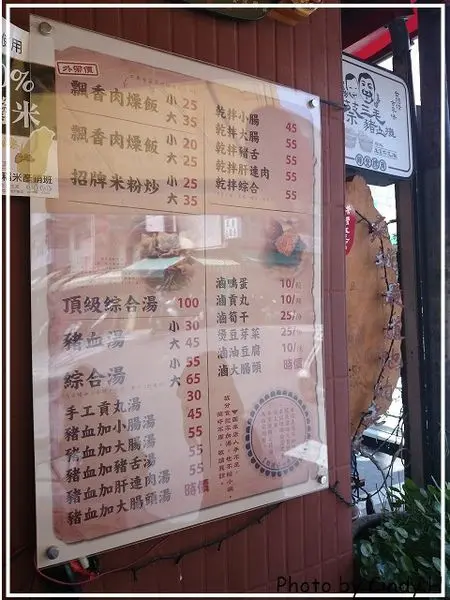 使用
0%
米
米產銷班
外帶價
飄香肉燥飯 小 25
大 35
飄香肉燥飯 小 20
大 25
招牌米粉炒 小 25
大 35
頂級綜合湯 100
豬血湯 小 30
大 45
綜合湯 小 55
大 65
手工貢丸湯 30
豬血加小腸湯 45
豬血加大腸湯 55
豬血加豬舌湯 55
豬血加肝連肉湯 55
豬血加大腸頭湯 時價
乾拌小腸 45
乾拌大腸 55
乾拌豬舌 55
乾拌肝連肉 55
乾拌綜合 55
滷鴨蛋 10/粒
滷貢丸 10/
滷筍干 25/
燙豆芽菜 25/
滷油豆腐 10/
滷大腸頭 時價
蔡三毛
豬血湯
Photo by Cindy